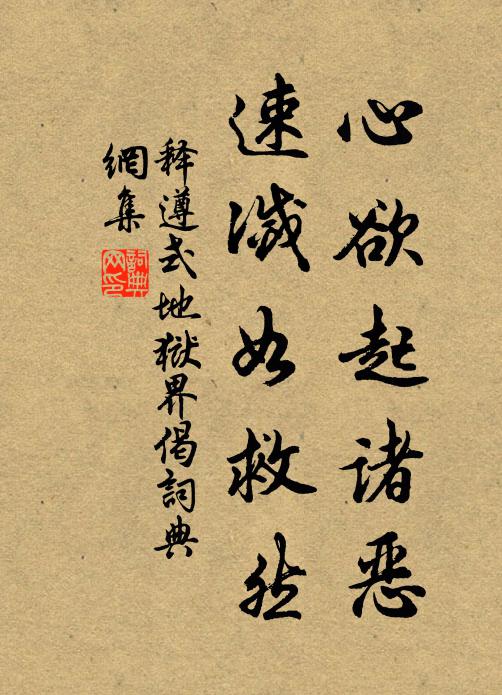 心欲起诸恶
速滅如救然
释遵式地獄界偈詞典
網集
詞典
网印